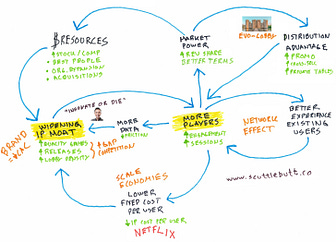 $RESOURCES
↑STOCK/COMP
↑BEST PEOPLE
↑ORG. EXPANSION
↑ACQUISITIONS
MARKET
POWER
↑REV SHARE
BETTER TERMS
EVO-LOBBY
DISTRIBUTION
ADVANTAGE
↑PROMO
"INNOVATE OR DIE"
WIDENING
IP MOAT
↑QUALITY GAMES
↑RELEASES
BRAND
↑GAP
COMPETITION
MORE
DATA
MORE
PLAYERS
↑ENGAGEMENT
↑SESSIONS
NETWORK
EFFECT
BETTER
EXPERIENCE
EXISTING
USERS
SCALE
ECONOMIES
LOWER
FIXED COST
PER USER
↓IP COST PER USER
NETFLIX
www.scuttlebutt.co